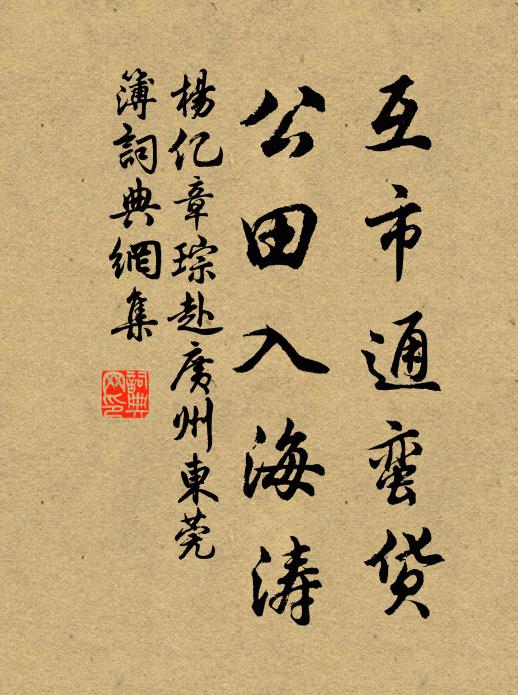 互市通蛮货
公田入海涛
楊亿章琮赴廣州東莞
簿詞典網集
詞典网印